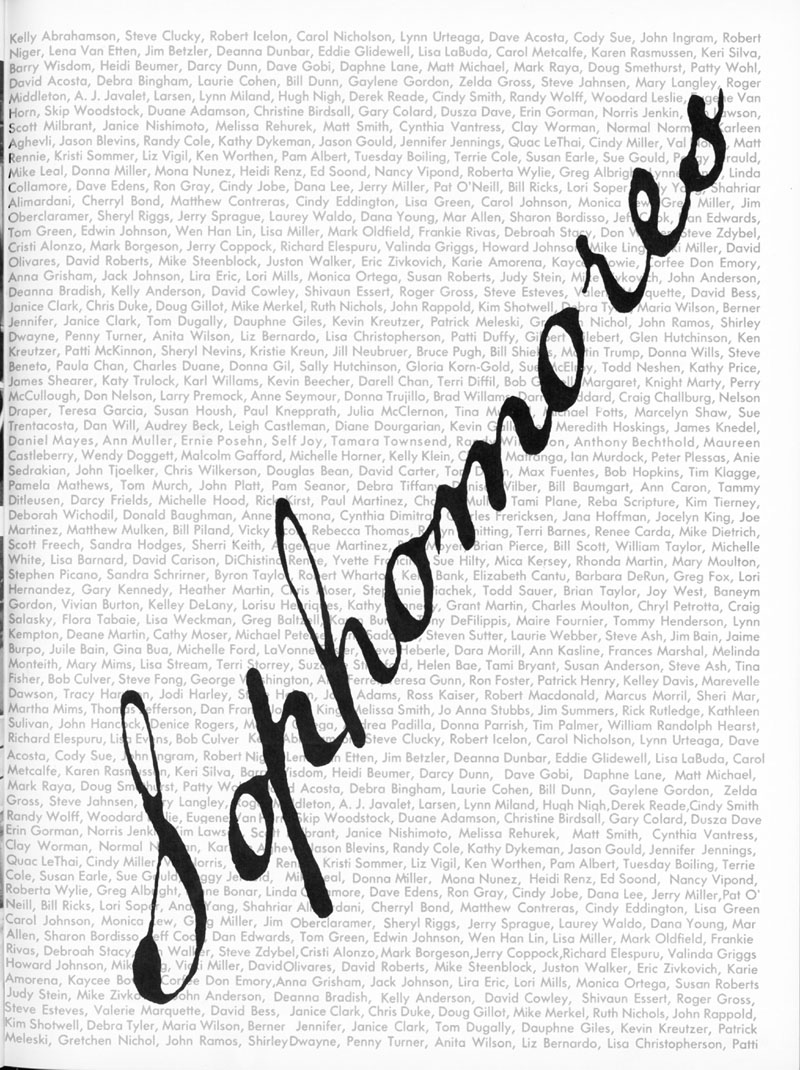 Sophomores
Kelly Abrahamson, Steve Clucky, Robert Icelon, Carol Nicholson, Lynn Urteaga, Dave Acosta, Cody Sue, John Ingram, Robert
Niger, Lena Van Etten, Jim Betzler, Deanna Dunbar, Eddie Glidewell, Lisa LaBuda, Carol Metcalfe, Karen Rasmussen, Keri Silva,
Barry Wisdom, Heidi Beumer, Darcy Dunn, Dave Gobi, Daphne Lane, Matt Michael, Mark Raya, Doug Smethurst, Patty Wohl,
David Acosta, Debra Bingham, Laurie Cohen, Bill Dunn, Gaylene Gordon, Zelda Gross, Steve Jahnsen, Mary Langley, Roger
Middleton, A. J. Javalet, Larsen, Lynn Miland, Hugh Nigh, Derek Reade, Cindy Smith, Randy Wolff, Woodard Leslie, Van
Horn, Skip Woodstock, Duane Adamson, Christine Birdsall, Gary Colard, Dusza Dave, Erin Gorman, Norris Jenkin,
Scott Milbrant, Janice Nishimoto, Melissa Rehurek, Matt Smith, Cynthia Vantress, Clay Worman, Normal
Aghevli, Jason Blevins, Randy Cole, Kathy Dykeman, Jason Gould, Jennifer Jennings, Quac LeThai, Cindy Miller, Val Matt
Rennie, Kristi Sommer, Liz Vigil, Ken Worthen, Pam Albert, Tuesday Boiling, Terrie Cole, Susan Earle, Sue Gould,
Mike Leal, Donna Miller, Mona Nunez, Heidi Renz, Ed Soond, Nancy Vipond, Roberta Wylie, Greg Linda
Collamore, Dave Edens, Ron Gray, Cindy Jobe, Dana Lee, Jerry Miller, Pat O'Neill, Bill Ricks, Lori Soper, Shahriar
Alimardani, Cherryl Bond, Matthew Contreras, Cindy Eddington, Lisa Green, Carol Johnson, Monica Miller, Jim
Oberclaramer, Sheryl Riggs, Jerry Sprague, Laurey Waldo, Dana Young, Mar Allen, Sharon Bordisso, Edwards,
Tom Green, Edwin Johnson, Wen Han Lin, Lisa Miller, Mark Oldfield, Frankie Rivas, Debroah Stacy, Don Steve Zdybel,
Cristi Alonzo, Mark Borgeson, Jerry Coppock, Richard Elespuru, Valinda Griggs, Howard Johnson, Mike Miller, David
Olivares, David Roberts, Mike Steenblock, Juston Walker, Eric Zivkovich, Karie Amorena, Don Emory,
Anna Grisham, Jack Johnson, Lira Eric, Lori Mills, Monica Ortega, Susan Roberts, Judy Stein, John Anderson,
Deanna Bradish, Kelly Anderson, David Cowley, Shivaun Essert, Roger Gross, Steve Esteves, David Bess,
Janice Clark, Chris Duke, Doug Gillot, Mike Merkel, Ruth Nichols, John Rappold, Kim Shotwell, Maria Wilson, Berner
Jennifer, Janice Clark, Tom Dugally, Dauphne Giles, Kevin Kreutzer, Patrick Meleski, Nichol, John Ramos, Shirley
Dwayne, Penny Turner, Anita Wilson, Liz Bernardo, Lisa Christopherson, Patti Duffy, Glen Hutchinson, Ken
Kreutzer, Patti McKinnon, Sheryl Nevins, Kristie Kreun, Jill Neubruer, Bruce Pugh, Bill Trump, Donna Wills, Steve
Beneto, Paula Chan, Charles Duane, Donna Gil, Sally Hutchinson, Gloria Korn-Gold, Todd Neshen, Kathy Price,
James Shearer, Katy Trulock, Karl Williams, Kevin Beecher, Darell Chan, Terri Diffil, Bob Margaret, Knight Marty, Perry
McCullough, Don Nelson, Larry Premock, Anne Seymour, Donna Trujillo, Brad Craig Challburg, Nelson
Draper, Teresa Garcia, Susan Housh, Paul Knepprath, Julia McClernon, Tina Fotts, Marcelyn Shaw, Sue
Trentacosta, Dan Will, Audrey Beck, Leigh Castleman, Diane Dourgarian, Kevin Meredith Hoskings, James Knedel,
Daniel Mayes, Ann Muller, Ernie Posehn, Self Joy, Tamara Townsend, Anthony Bechthold, Maureen
Castleberry, Wendy Doggett, Malcolm Gafford, Michelle Horner, Kelly Klein, Ian Murdock, Peter Plessas, Anie
Sedrakian, John Tjoelker, Chris Wilkerson, Douglas Bean, David Carter, Max Fuentes, Bob Hopkins, Tim Klagge,
Pamela Mathews, Tom Murch, John Platt, Pam Seanor, Debra Vilber, Bill Baumgart, Ann Caron, Tammy
Ditleusen, Darcy Frields, Michelle Hood, Rick Kirst, Paul Martinez, Tami Plane, Reba Scripture, Kim Tierney,
Deborah Wichodil, Donald Baughman, Cynthia Frericksen, Jana Hoffman, Jocelyn King, Joe
Martinez, Matthew Mulken, Bill Piland, Vicky Rebecca Thomas, Terri Barnes, Renee Carda, Mike Dietrich,
Scott Freech, Sandra Hodges, Sherri Keith, Martinez, Brian Pierce, Bill Scott, William Taylor, Michelle
White, Lisa Barnard, David Carison, Yvette Sue Hilty, Mica Kersey, Rhonda Martin, Mary Moulton,
Stephen Picano, Sandra Schrirner, Byron Robert Bank, Elizabeth Cantu, Barbara DeRun, Greg Fox, Lori
Hernandez, Gary Kennedy, Heather Martin, Todd Sauer, Brian Taylor, Joy West, Baneym
Gordon, Vivian Burton, Kelley DeLany, Lorisu Kathy Grant Martin, Charles Moulton, Chryl Petrotta, Craig
Solasky, Flora Tabaie, Lisa Weckman, Greg DeFilippis, Maire Fournier, Tommy Henderson, Lynn
Kempton, Deane Martin, Cathy Moser, Michael Steven Sutter, Laurie Webber, Steve Ash, Jim Bain, Jaime
Burpo, Juile Bain, Gina Bua, Michelle Ford, Heberle, Dara Morill, Ann Kasline, Frances Marshal, Melinda
Monteith, Mary Mims, Lisa Stream, Terri Storrey, Helen Bae, Tami Bryant, Susan Anderson, Steve Ash, Tina
Fisher, Bob Culver, Steve Fong, George Gunn, Ron Foster, Patrick Henry, Kelley Davis, Marevelle
Dawson, Tracy Jodi Harley, Adams, Ross Kaiser, Robert Macdonald, Marcus Morril, Sheri Mar,
Martha Mims, Jefferson, Dan King, Melissa Smith, Jo Anna Stubbs, Jim Summers, Rick Rutledge, Kathleen
Sulivan, John Denice Rogers, Padilla, Donna Parrish, Tim Palmer, William Randolph Hearst,
Richard Elespuru, Bob Culver Steve Clucky, Robert Icelon, Carol Nicholson, Lynn Urteaga, Dave
Acosta, Cody Sue, Ingram, Robert Etten, Jim Betzler, Deanna Dunbar, Eddie Glidewell, Lisa LaBuda, Carol
Metcalfe, Karen Keri Silva, Wisdom, Heidi Beumer, Darcy Dunn, Dave Gobi, Daphne Lane, Matt Michael,
Mark Raya, Doug Patty Acosta, Debra Bingham, Laurie Cohen, Bill Dunn, Gaylene Gordon, Zelda
Gross, Steve Jahnsen, Langley, A. J. Javalet, Larsen, Lynn Miland, Hugh Nigh,Derek Reade,Cindy Smith
Randy Wolff, Woodard Eugene Skip Woodstock, Duane Adamson, Christine Birdsall, Gary Colard, Dusza Dave
Erin Gorman, Norris Janice Nishimoto, Melissa Rehurek, Matt Smith, Cynthia Vantress,
Clay Worman, Normal Jason Blevins, Randy Cole, Kathy Dykeman, Jason Gould, Jennifer Jennings,
Quac LeThai, Cindy Miller Kristi Sommer, Liz Vigil, Ken Worthen, Pam Albert, Tuesday Boiling, Terrie
Cole, Susan Earle, Sue Donna Miller, Mona Nunez, Heidi Renz, Ed Soond, Nancy Vipond,
Roberta Wylie, Greg Bonar, Linda Dave Edens, Ron Gray, Cindy Jobe, Dana Lee, Jerry Miller,Pat O'
Neill, Bill Ricks, Lori Yang, Shahriar Cherryl Bond, Matthew Contreras, Cindy Eddington, Lisa Green
Carol Johnson, Monica Miller, Jim Oberclaramer, Sheryl Riggs, Jerry Sprague, Laurey Waldo, Dana Young, Mar
Allen, Sharon Bordisso Dan Edwards, Tom Green, Edwin Johnson, Wen Han Lin, Lisa Miller, Mark Oldfield, Frankie
Rivas, Debroah Stacy, Steve Zdybel,Cristi Alonzo,Mark Borgeson,Jerry Coppock,Richard Elespuru, Valinda Griggs
Howard Johnson, Miller, DavidOlivares, David Roberts, Mike Steenblock, Juston Walker, Eric Zivkovich, Karie
Amorena, Kaycee Don Emory,Anna Grisham, Jack Johnson, Lira Eric, Lori Mills, Monica Ortega, Susan Roberts
Judy Stein, Mike John Anderson, Deanna Bradish, Kelly Anderson, David Cowley, Shivaun Essert, Roger Gross,
Steve Esteves, Valerie Marquette, David Bess, Janice Clark, Chris Duke, Doug Gillot, Mike Merkel, Ruth Nichols, John Rappold,
Kim Shotwell, Debra Tyler, Maria Wilson, Berner Jennifer, Janice Clark, Tom Dugally, Dauphne Giles, Kevin Kreutzer, Patrick
Meleski, Gretchen Nichol, John Ramos, ShirleyDwayne, Penny Turner, Anita Wilson, Liz Bernardo, Lisa Christopherson, Patti